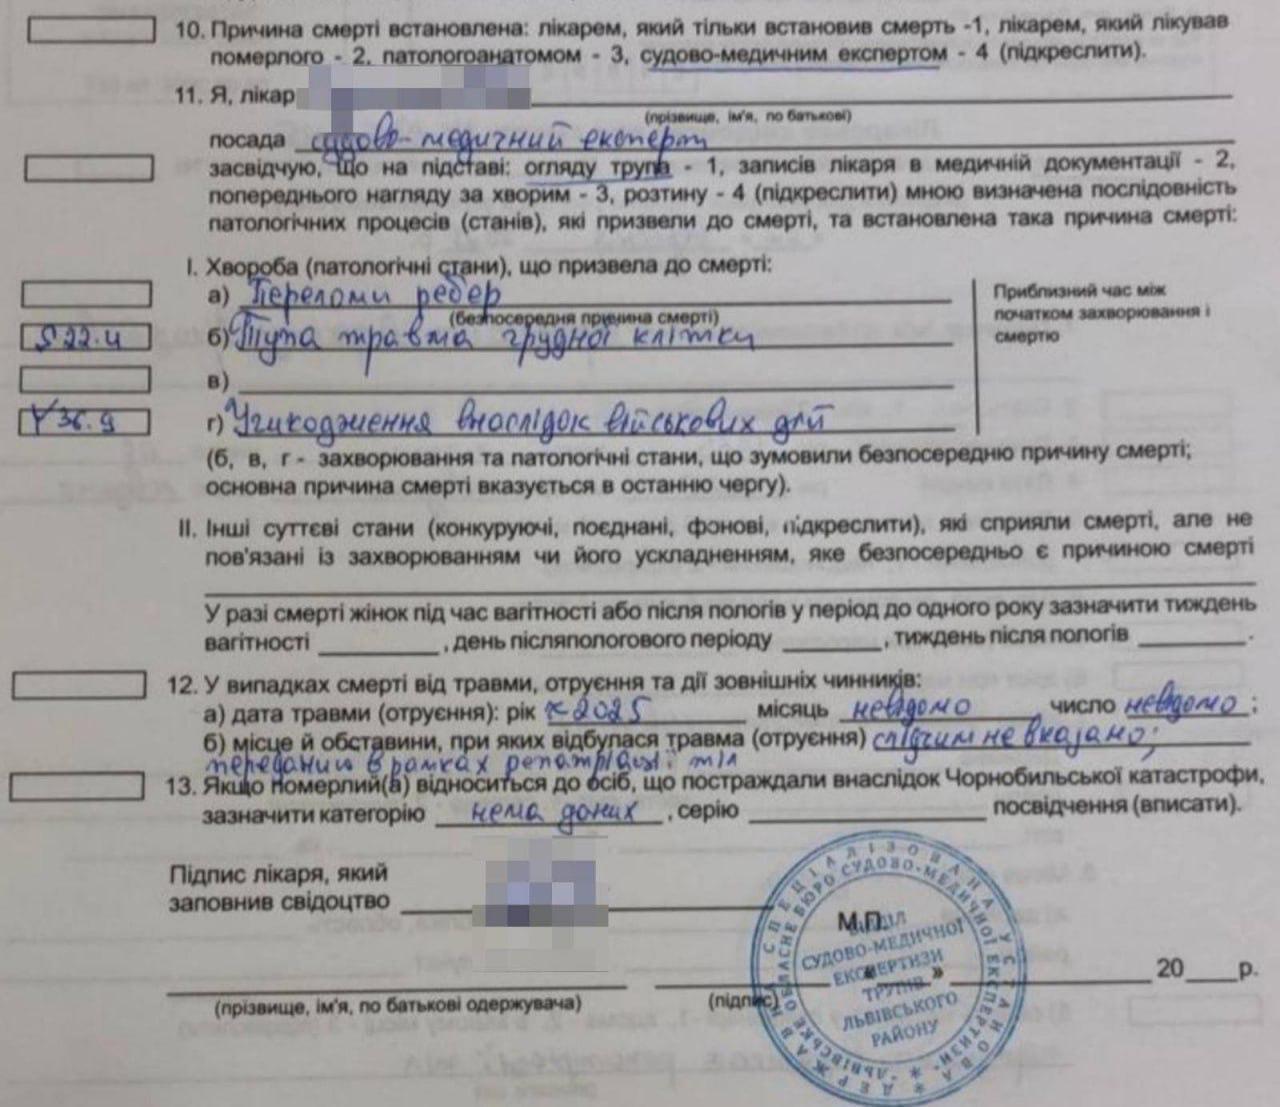 10. Причина смерті встановлена: лікарем, який тільки встановив смерть -1, лікарем, який лікував
померлого - 2, патологоанатомом - 3, судово-медичним експертом - 4 (підкреслити).
11. Я, лікар
(прізвище, ім'я, по батькові)
посада судово-медичний експерт
засвідчую, що на підставі: огляду трупа - 1, записів лікаря в медичній документації - 2,
попереднього нагляду за хворим - 3, розтину - 4 (підкреслити) мною визначена послідовність
патологічних процесів (станів), які призвели до смерті, та встановлена така причина смерті:
І. Хвороба (патологічні стани), що призвела до смерті:
а) Переломи ребер
(безпосередня причина смерті)
S 22.4 б) Тупа травма грудної клітки
в)
Y 36.9 г) Ушкодження внаслідок військових дій
Приблизний час між
початком захворювання і
смертю
(б, в, г - захворювання та патологічні стани, що зумовили безпосередню причину смерті;
основна причина смерті вказується в останню чергу).
ІІ. Інші суттєві стани (конкуруючі, поєднані, фонові, підкреслити), які сприяли смерті, але не
пов'язані із захворюванням чи його ускладненням, яке безпосередньо є причиною смерті
У разі смерті жінок під час вагітності або після пологів у період до одного року зазначити тиждень
вагітності , день післяпологового періоду , тиждень після пологів .
12. У випадках смерті від травми, отруєння та дії зовнішніх чинників:
а) дата травми (отруєння): рік ≈ 2025 місяць невідомо число невідомо ;
б) місце й обставини, при яких відбулася травма (отруєння) слідчим не вказано;
переданий в рамках репатріації тіл
13. Якщо померлий(а) відноситься до осіб, що постраждали внаслідок Чорнобильської катастрофи,
зазначити категорію нема даних , серію посвідчення (вписати).
Підпис лікаря, який
заповнив свідоцтво
М.П.
« » 20 р.
(прізвище, ім'я, по батькові одержувача) (підпис)
ДЕРЖАВНА СПЕЦІАЛІЗОВАНА УСТАНОВА
"ЛЬВІВСЬКЕ ОБЛАСНЕ БЮРО СУДОВО-МЕДИЧНОЇ ЕКСПЕРТИЗИ"
ВІДДІЛ
СУДОВО-МЕДИЧНОЇ
ЕКСПЕРТИЗИ
ТРУПІВ
ЛЬВІВСЬКОГО
РАЙОНУ